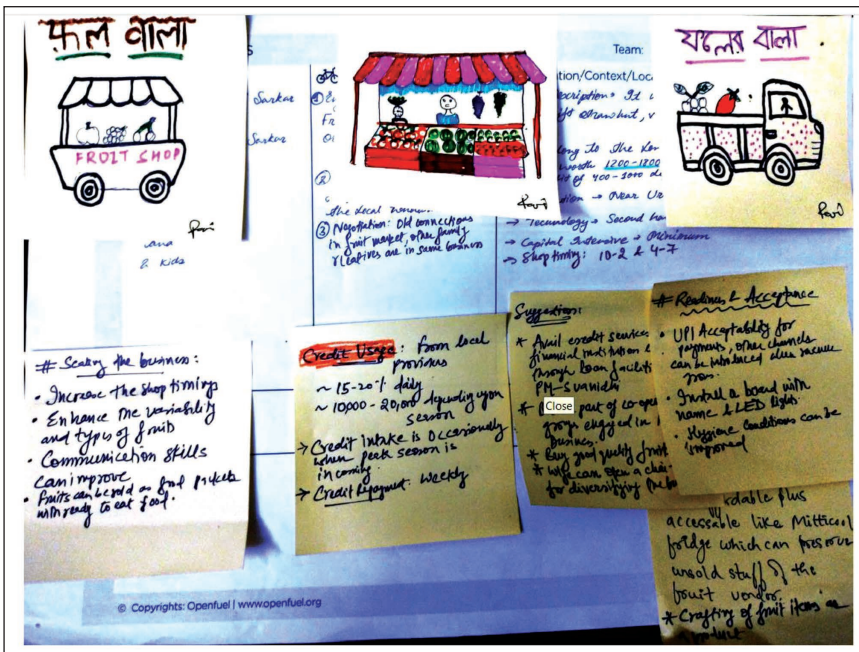 फल वाला
FRUIT SHOP
Ravi
Ravi
ফলের বালা
Ravi
S
Team:
Sarkar
Sarkar
①
Fr
②
the local
③ Negotiation: Old connections
in fruit market, other family
relatives are in same business
& kids
tion/Context/Loc
scription: It
long to the
worth 1200-1800
of 400-1000
tion → Near
→ Technology → Second
→ Capital Intensive → Minimum
→ Shop timing: 10-2 & 4-7
# Scaling the business:
• Increase the shop timings
• Enhance the variability
and types of fruit
• Communication skills
can improve
• Fruits can be sold as food packets
with ready to eat food.
Credit Usage: From local
providers
~ 15-20% daily
~ 10,000 - 20,000 depending upon
season
→ Credit Intake is Occasionally
when peak season is
incoming.
→ Credit Repayment: Weekly
Suggestions:
* Avail credit services
financial institution
through loan faciliti
PM-svanidhi
Close
part of co-ope
groups engaged in
business.
* Buy good quality fruit
* Wife can open a
for diversifying
# Readiness & Acceptance
• UPI Acceptability for
payments, other channels
can be introduced
• Install a board with
name & LED light.
• Hygiene conditions can be
improved
rdable plus
accessable like Mitticool
fridge which can preserve
unsold stuff of the
fruit vendor.
* Crafting of fruit items as
product
© Copyrights: Openfuel | www.openfuel.org